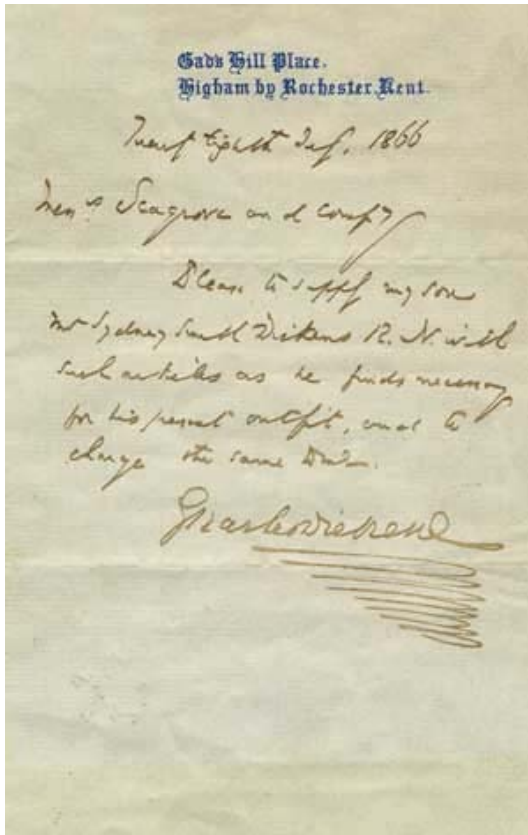 Gad's Hill Place.
Higham by Rochester, Kent.
Eighth July, 1866
Messrs Seagrove and Compy
Please to supply my son
Mr Sydney Smith Dickens R. N. with
such articles as he finds necessary
for his present outfit, and to
charge the same to me.
Charles Dickens